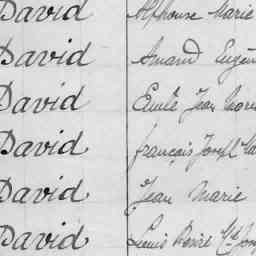 David Alphonse Marie
David Amand Eugène
David Emile Jean Marie
David François Joseph
David Jean Marie
David Louis Désiré